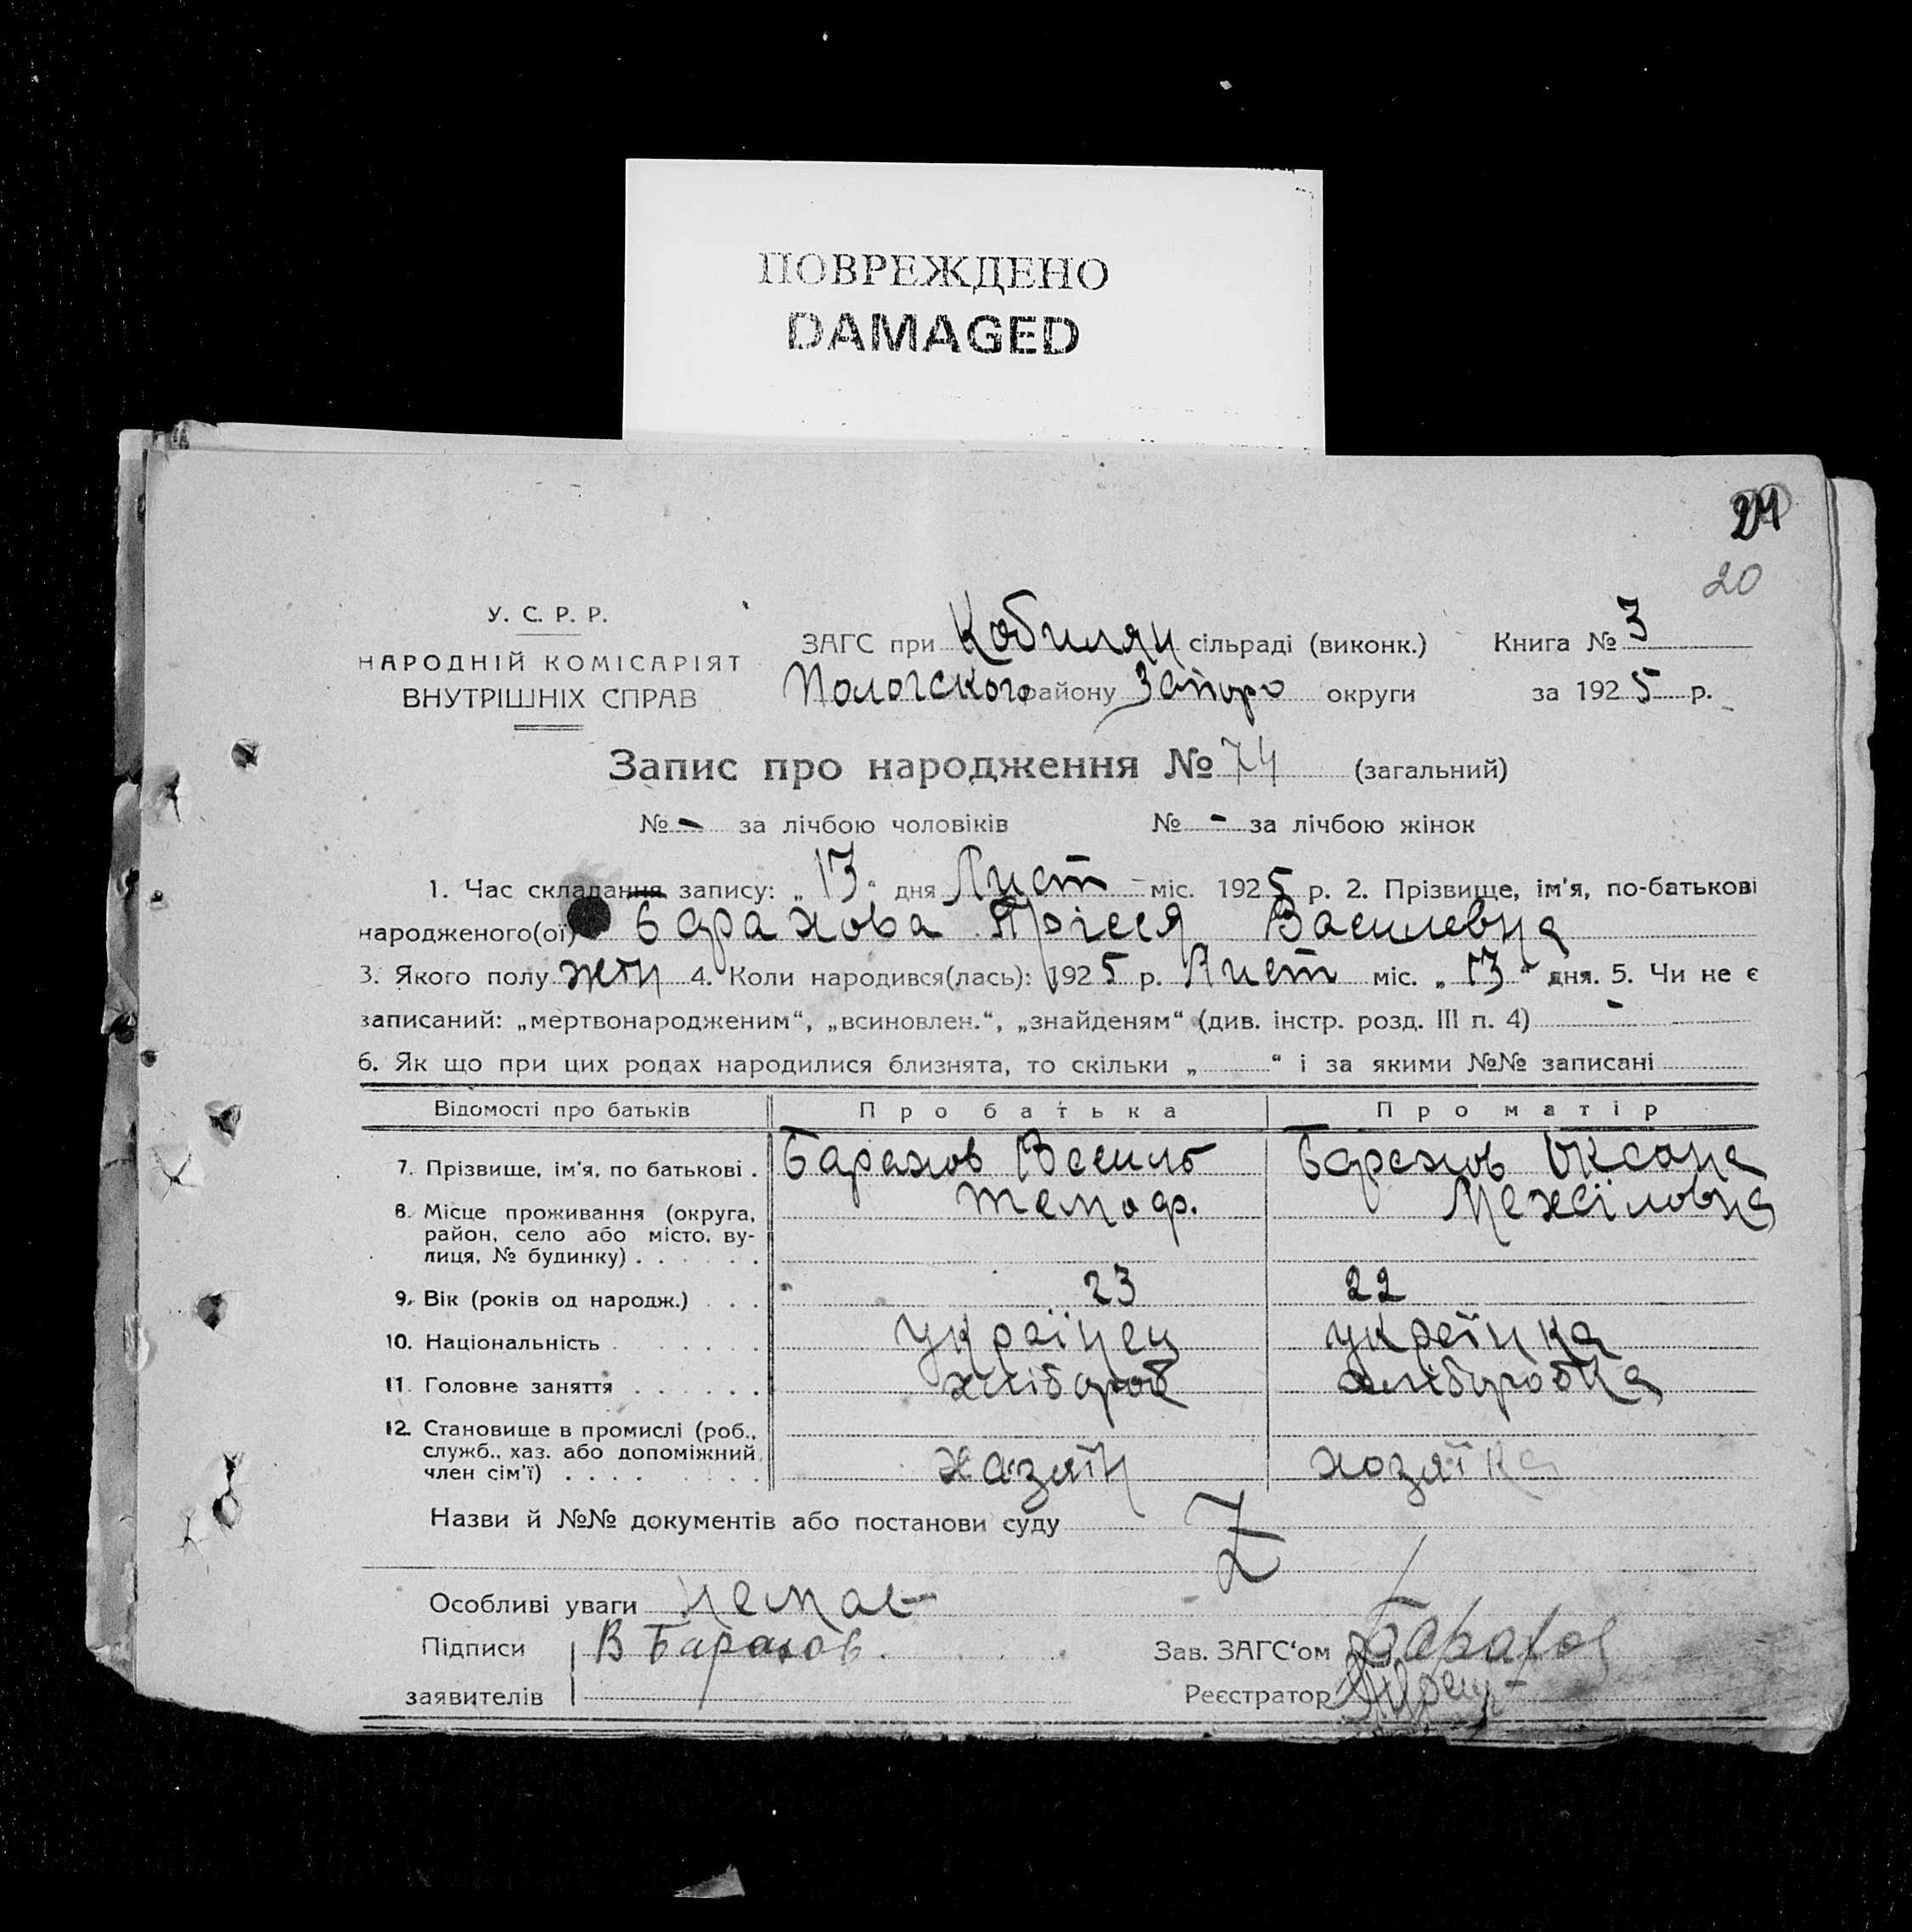 ПОВРЕЖДЕНО
DAMAGED
20
У. С. Р. Р.
НАРОДНІЙ КОМІСАРІЯТ
ВНУТРІШНІХ СПРАВ
ЗАГС при Кобиляц сільраді (виконк.) Книга № 3
Пологского району Запоро округи за 1925 р.
Запис про народження № 74 (загальний)
№ - за лічбою чоловіків № - за лічбою жінок
1. Час складання запису: „13“ дня Лист міс. 1925 р. 2. Прізвище, ім'я, по-батькові
народженого(ої) Барахова Прісся Василевна
3. Якого полу жін 4. Коли народився(лась): 1925 р. Лист міс. „13“ дня. 5. Чи не є
записаний: „мертвонародженим“, „всиновлен.“, „знайденям“ (див. інстр. розд. III п. 4) -
6. Як що при цих родах народилися близнята, то скільки „ “ і за якими №№ записані
Відомості про батьків Про батька Про матір
7. Прізвище, ім'я, по батькові . Барахов Василь Барахов Оксана
8. Місце проживання (округа, Темоф. Мехсіловна
район, село або місто, ву-
лиця, № будинку) . . . . . .
9. Вік (років од народж.) . . . 23 22
10. Національність . . . . . . . україңец українка
11. Головне заняття . . . . . . хлібороб хліборобка
12. Становище в промислі (роб.,
служб., хаз. або допоміжний
член сім'ї) . . . . . . . . . хазяїн хозяїка
Назви й №№ документів або постанови суду Z
Особливі уваги немає
Підписи В Барахов. Зав. ЗАГС'ом Барахов
заявителів Реєстратор